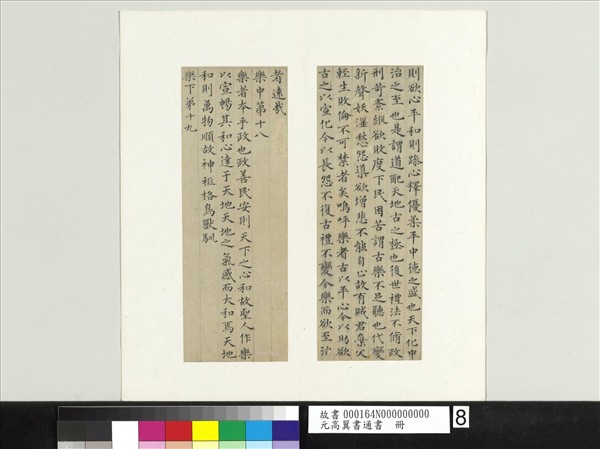 則欲心平和則躁心釋優柔平中德之盛也天下化中
治之至也是謂道配天地古之極也後世禮法不脩政
刑苛紊縱欲敗度下民困苦謂古樂不足聽也代變
新聲妖淫愁怨導欲增悲不能自止故有賊君棄父
輕生敗倫不可禁者矣嗚呼樂者古以平心今以助欲
古之以宣化今以長怨不復古禮不變今樂而欲至治
者遠哉
樂中第十八
樂者本乎政也政善民安則天下之心和故聖人作樂
以宣暢其和心達于天地天地之氣感而大和焉天地
和則萬物順故神祗格鳥獸馴
樂下第十九
故書 000164N000000000
元高翼書通書 冊
8